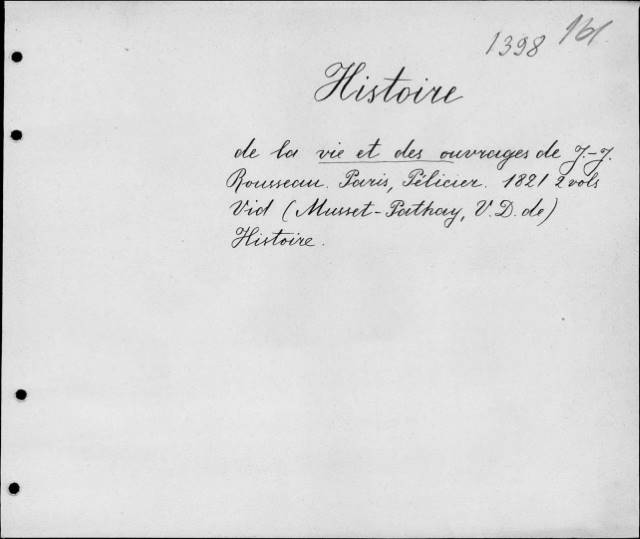 1398 161
Histoire
de la vie et des ouvrages de J.-J.
Rousseau. Paris, Pélicier. 1821 2 vols
Vid (Musset-Pathay, V.D. de)
Histoire.